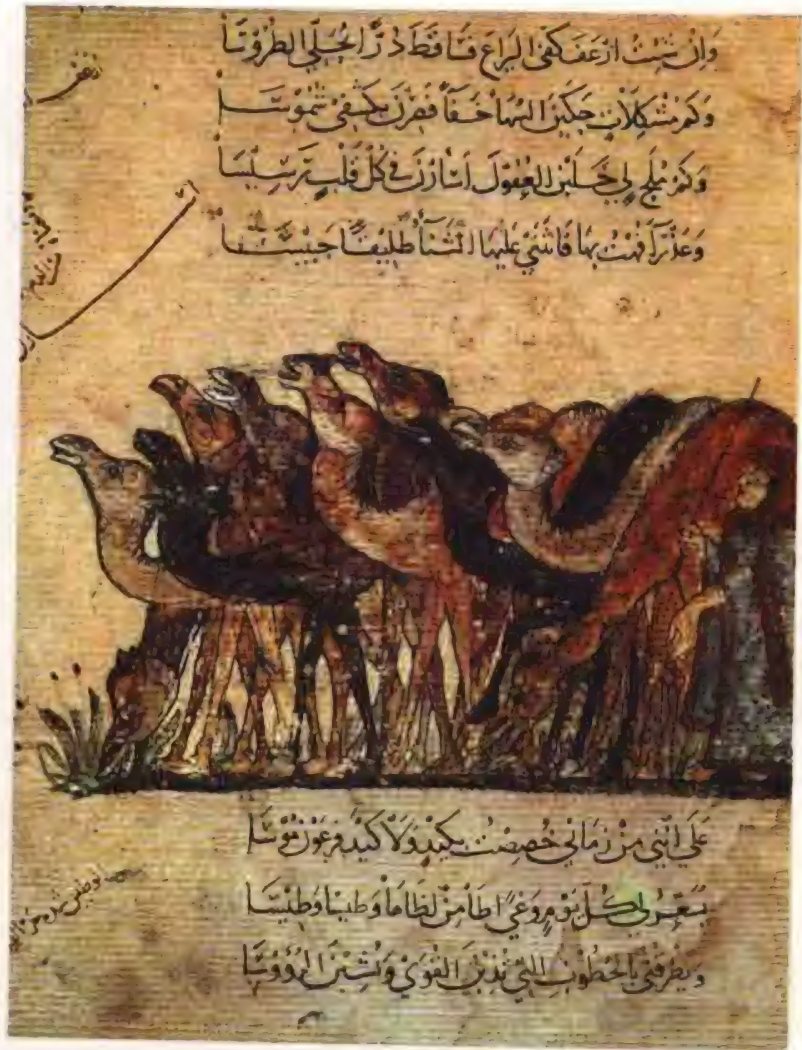 وان شئت ارعف كفى اليراع فساقط درا يحلي الطروسا
وكم مشكلات حكين السها خفاً فصرن بكشفي شموسا
وكم ملح لي خلبن العقول اسأرن في كل قلب رسيسا
وعذرآ فهت بها فانثنى عليها الثنآ طليقا حبيسا
على انني من زماني خصصت بكيد ولا كيد فرعون موسا
يسعر لي كل يوم وغى اطا من لظاها وطيسا وطيسا
ويطرقني بالخطوب التي يذبن القوى ويشبن الرؤوسا